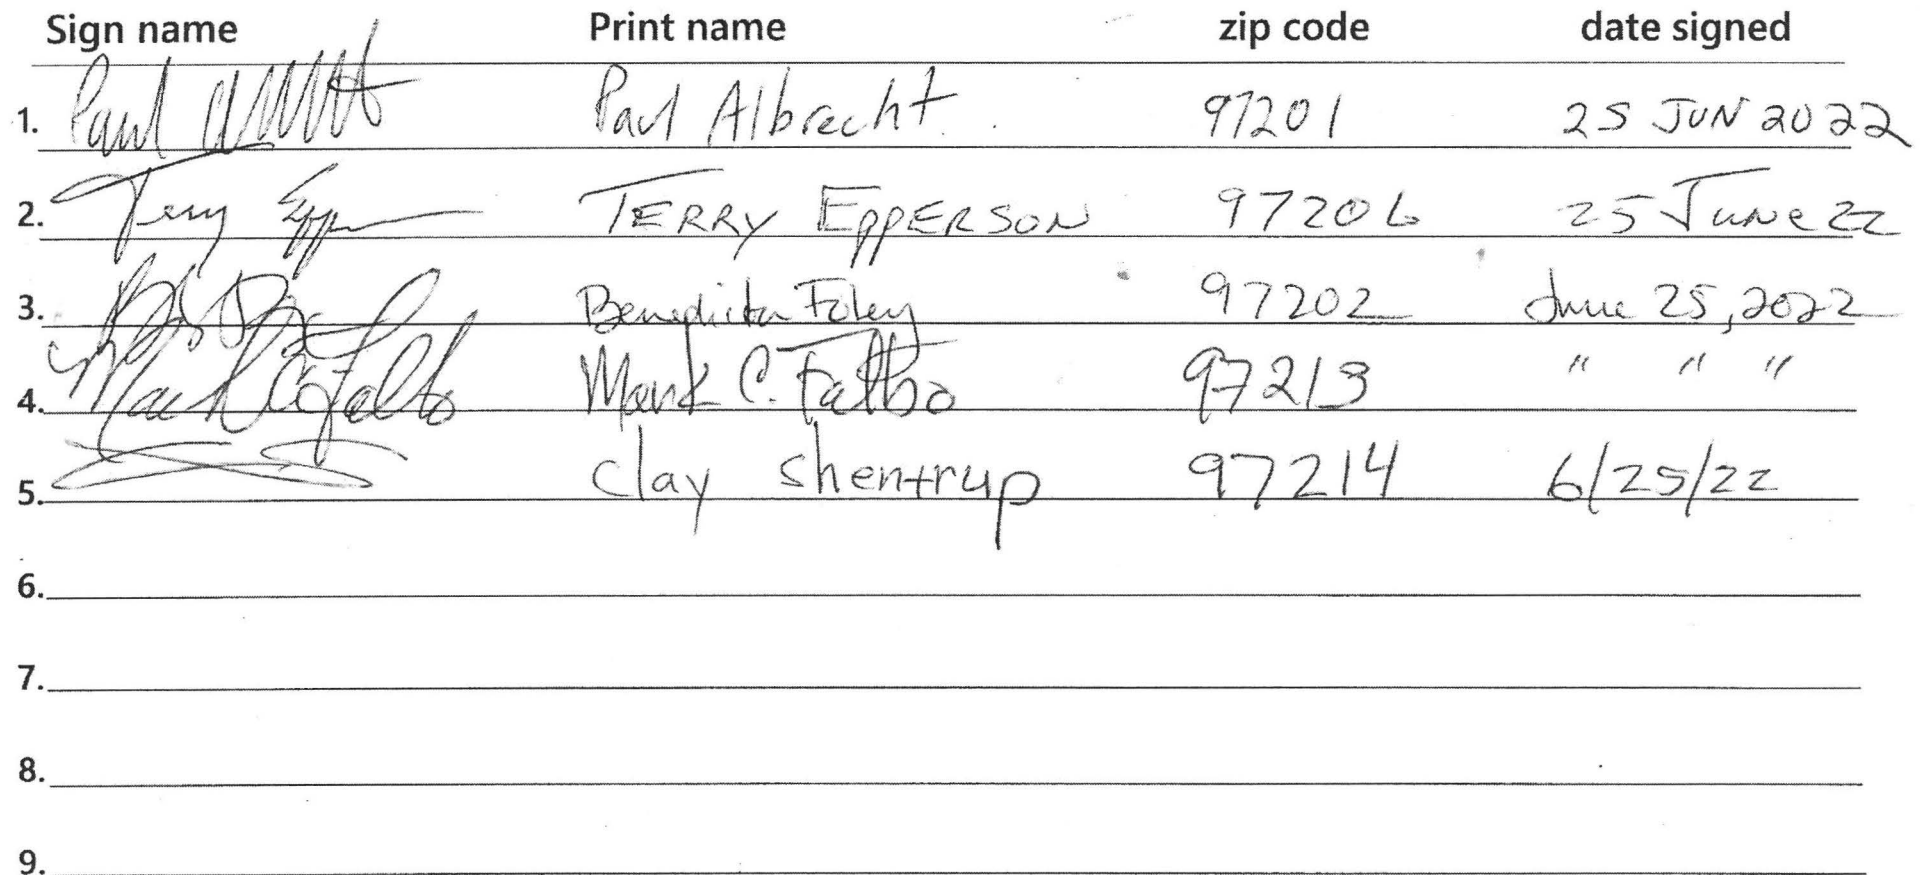 Sign name Print name zip code date signed
1. Paul Paul Albrecht 97201 25 JUN 2022
2. Terry TERRY EPPERSON 97206 25 June 22
3. Benedicta Foley 97202 June 25, 2022
4. Mark C Falbo Mark C. Falbo 97213 " " "
5. Clay Shentrup 97214 6/25/22
6.
7.
8.
9.